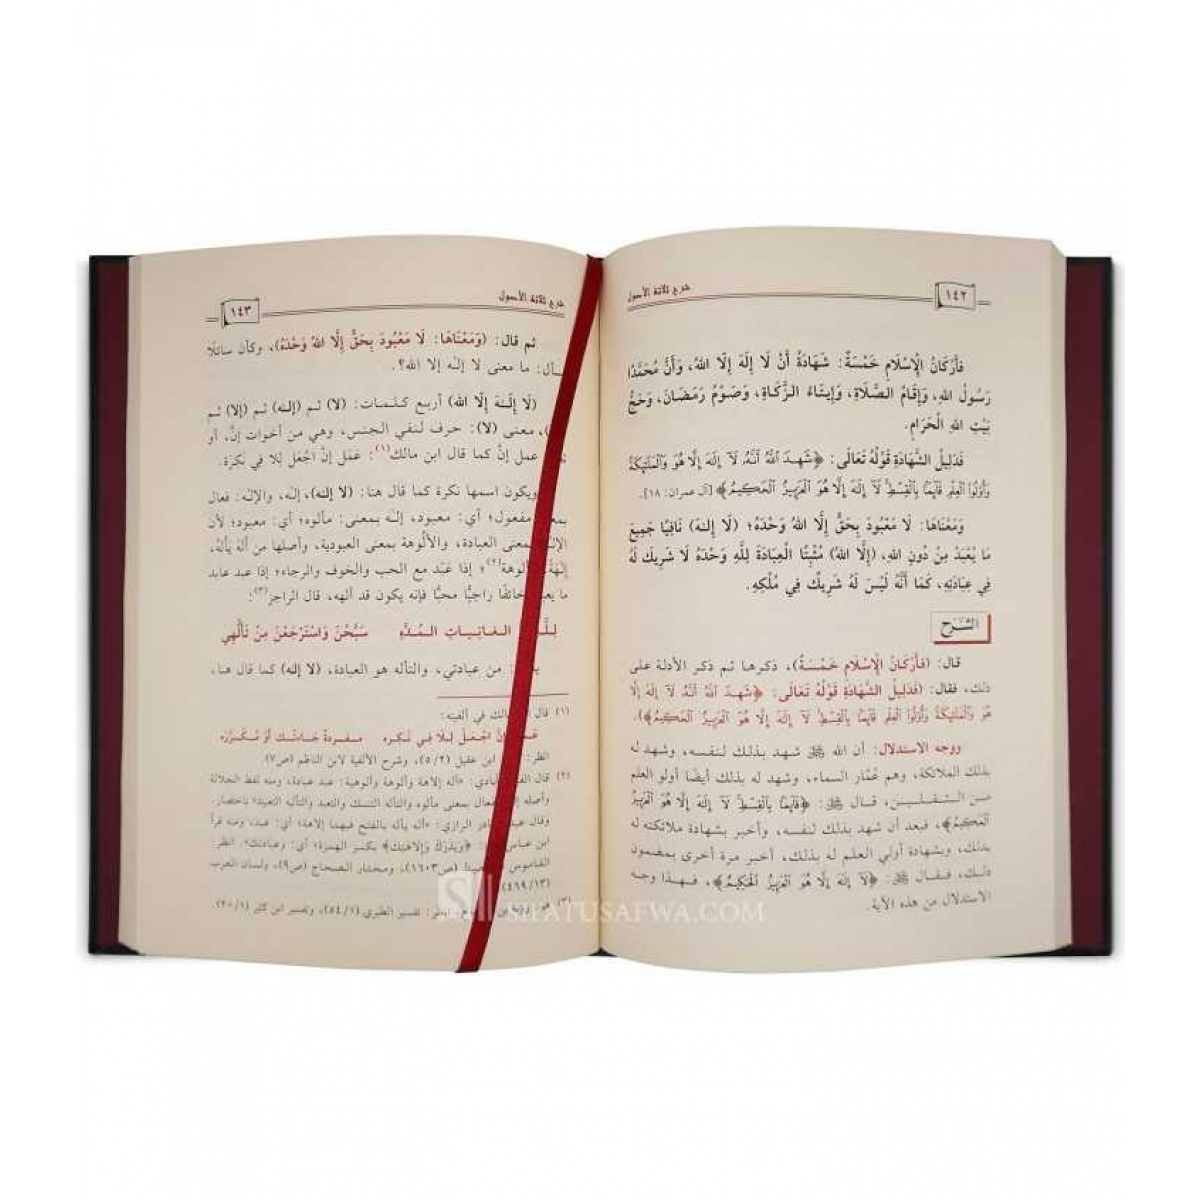 ١٤٢
شرح ثلاثة الأصول
فَأَرْكَانُ الْإِسْلَامِ خَمْسَةٌ: شَهَادَةُ أَنْ لَا إِلَهَ إِلَّا اللهُ، وَأَنَّ مُحَمَّدًا
رَسُولُ اللهِ، وَإِقَامُ الصَّلَاةِ، وَإِيتَاءُ الزَّكَاةِ، وَصَوْمُ رَمَضَانَ، وَحَجُّ
بَيْتِ اللهِ الْحَرَامِ.
فَدَلِيلُ الشَّهَادَةِ قَوْلُهُ تَعَالَى: ﴿شَهِدَ ٱللَّهُ أَنَّهُۥ لَآ إِلَٰهَ إِلَّا هُوَ وَٱلْمَلَٰٓئِكَةُ
وَأُو۟لُوا۟ ٱلْعِلْمِ قَآئِمًۢا بِٱلْقِسْطِ لَآ إِلَٰهَ إِلَّا هُوَ ٱلْعَزِيزُ ٱلْحَكِيمُ﴾ [آل عمران: ١٨].
وَمَعْنَاهَا: لَا مَعْبُودَ بِحَقٍّ إِلَّا اللهُ وَحْدَهُ؛ (لَا إِلَهَ) نَافِيًا جَمِيعَ
مَا يُعْبَدُ مِنْ دُونِ اللهِ، (إِلَّا اللهُ) مُثْبِتًا الْعِبَادَةَ لِلَّهِ وَحْدَهُ لَا شَرِيكَ لَهُ
فِي عِبَادَتِهِ، كَمَا أَنَّهُ لَيْسَ لَهُ شَرِيكٌ فِي مُلْكِهِ.
الشَّرْح
قال: (فَأَرْكَانُ الْإِسْلَامِ خَمْسَةٌ)، ذكرها ثم ذكر الأدلة على
ذلك، فقال: (فَدَلِيلُ الشَّهَادَةِ قَوْلُهُ تَعَالَى: ﴿شَهِدَ ٱللَّهُ أَنَّهُۥ لَآ إِلَٰهَ إِلَّا
هُوَ وَٱلْمَلَٰٓئِكَةُ وَأُو۟لُوا۟ ٱلْعِلْمِ قَآئِمًۢا بِٱلْقِسْطِ لَآ إِلَٰهَ إِلَّا هُوَ ٱلْعَزِيزُ ٱلْحَكِيمُ﴾).
ووجه الاستدلال: أن الله ﷻ شهد بذلك لنفسه، وشهد له
بذلك الملائكة، وهم عُمَّار السماء، وشهد له بذلك أيضًا أولو العلم
من الثقلين، قال ﷻ: ﴿قَآئِمًۢا بِٱلْقِسْطِ لَآ إِلَٰهَ إِلَّا هُوَ ٱلْعَزِيزُ
ٱلْحَكِيمُ﴾، فبعد أن شهد بذلك لنفسه، وأخبر بشهادة ملائكته له
بذلك، وبشهادة أولي العلم له بذلك، أخبر مرة أخرى بمضمون
ذلك، فقال ﷻ: ﴿لَآ إِلَٰهَ إِلَّا هُوَ ٱلْعَزِيزُ ٱلْحَكِيمُ﴾، فهذا وجه
الاستدلال من هذه الآية.
شرح ثلاثة الأصول
١٤٣
ثم قال: (وَمَعْنَاهَا: لَا مَعْبُودَ بِحَقٍّ إِلَّا اللهُ وَحْدَهُ)، وكأن سائلًا
ـأل: ما معنى لا إله إلا الله؟.
(لَا إِلَهَ إِلَّا الله) أربع كلمات: (لا) ثم (إله) ثم (إلا) ثم
معنى (لا): حرف لنفي الجنس، وهي من أخوات إنَّ، أو
عمل إنَّ كما قال ابن مالك(١): عَمَل إنَّ اجْعَل لِلا في نكرة.
ويكون اسمها نكرة كما قال هنا: (لا إله)، إله، والإله: فعال
مفعول؛ أي: معبود، إله بمعنى: مألوه؛ أي: معبود؛ لأن
بمعنى العبادة، والألوهة بمعنى العبودية، وأصلها من أَلَه يَأْلَهُ،
إِلَهَةً وألوهة(٢)؛ إذا عَبَد مع الحب والخوف والرجاء؛ إذا عبد عابد
ما خائفًا راجيًا محبًا فإنه يكون قد ألهه، قال الراجز(٣):
الغَانِيَاتِ المُدَّهِ سَبَّحْنَ وَاسْتَرْجَعْنَ مِنْ تَأَلُّهِي
من عبادتي، والتأله هو العبادة، (لا إله) كما قال هنا،
(١) قال مالك في ألفيته:
إنَّ اجْعَلْ لِلا فِي نَكِرَه مُفْرَدَةً جَاءَتْكَ أَوْ مُكَرَّرَه
انظر: ابن عقيل (٥/٢)، وشرح الألفية لابن الناظم (ص٧)
(٢) قال أبادي: «أله إلاهة وألوهة وألوهية: عبد عبادة، ومنه لفظ الجلالة
وأصله فعال بمعنى مألوه والتأله التنسك والتعبد والتأليه التعبيد» باختصار.
وقال الرازي: «أله يأله بالفتح فيهما إلاهة؛ أي: عبد، ومنه قرأ
ابن عباس ﴿وَيَذَرَكَ وَإِلَاهَتَكَ﴾ بكسر الهمزة» أي: وعبادتك». انظر:
القاموس (ص١٦٠٣)، ومختار الصحاح (ص٩)، ولسان العرب
(٤٦٩/١٣)
(٣) انظر: تفسير الطبري (٥٤/١)، وتفسير ابن كثير (٢٠/١).
SIFATUSAFWA.COM